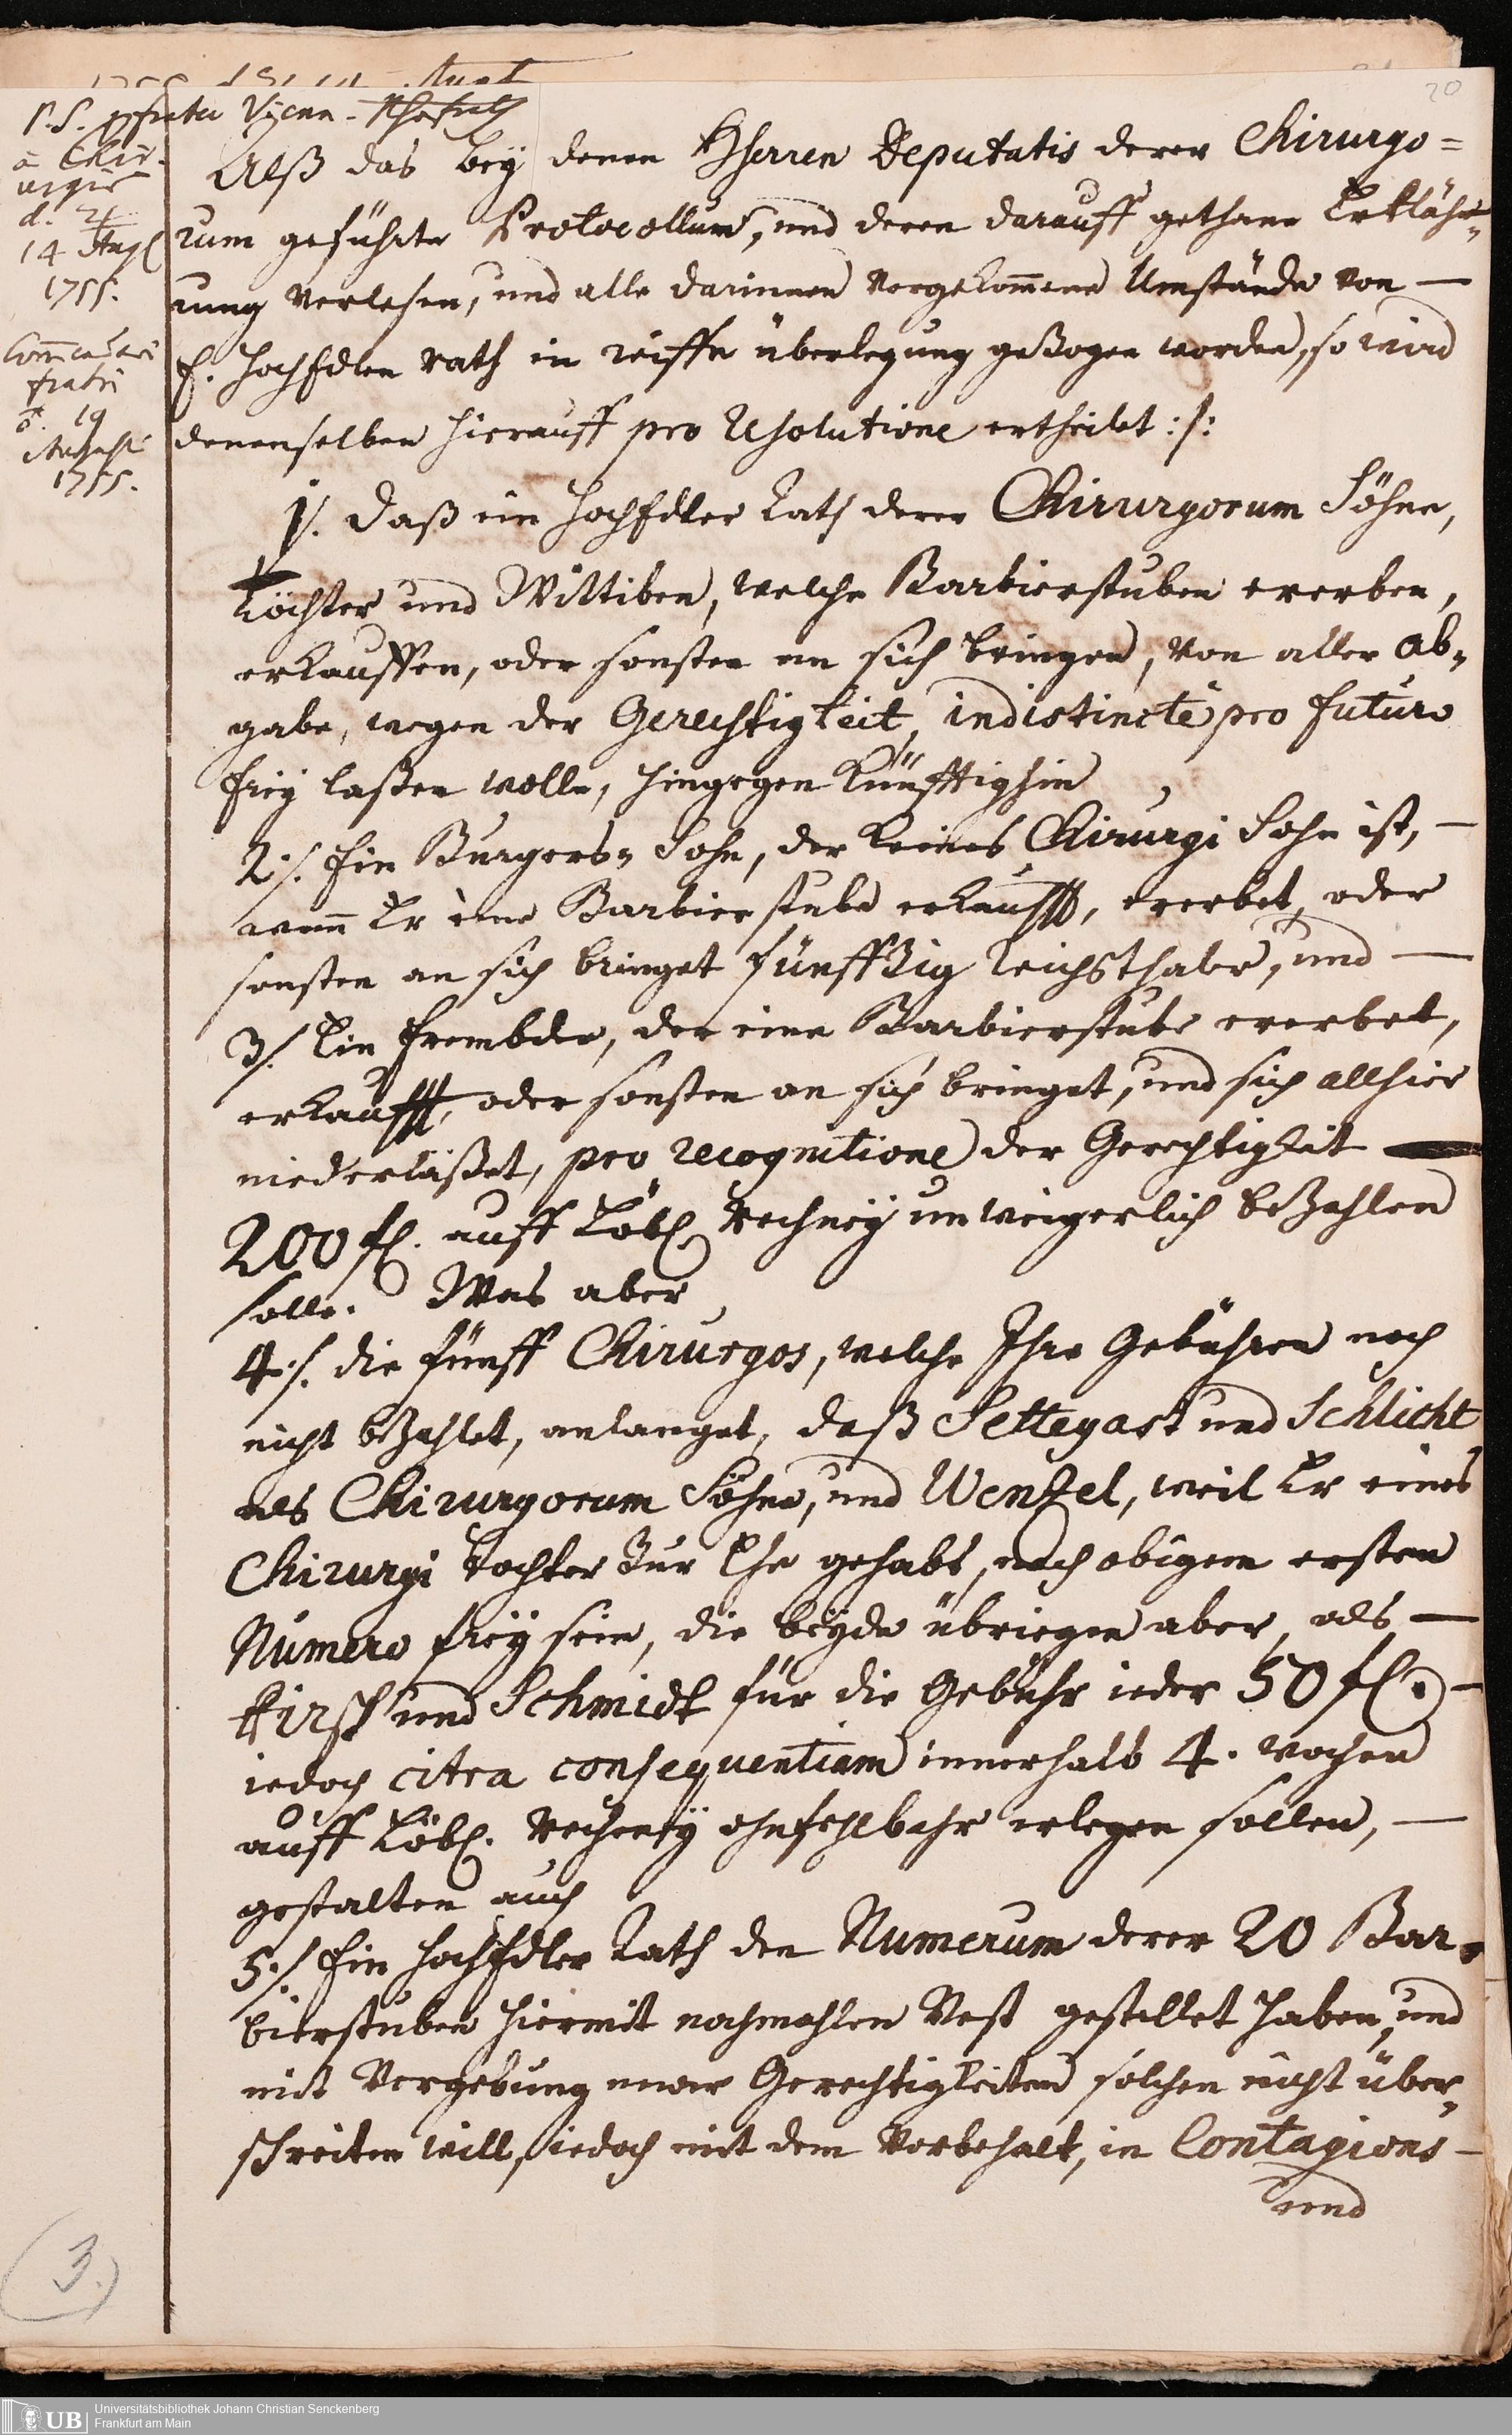 20
d. 4
14 Aug
1755.
19
Augusti
1755.
Alß das bey denen Hherren Deputatis derer Chirurgo=
rum geführte Protocollum, und deren darauff gethane Erkläh=
rung verlesen, und alle darinnen vorgekom̅ene Umstände von —
E. HochEdlen Rath in reiffe überlegung gezogen worden, so wird
denenselben hierauff pro Resolutione ertheilet :/:
1/. Daß ein HochEdler Rath derer Chirurgorum Söhne,
Töchter und Wittiben, welche Barbierstuben ererben,
erkauffen, oder sonsten an sich bringen, von aller Ab=
gabe, wegen der Gerechtigkeit, indistinctè pro futuro
frey laßen wolle, hingegen künfftighin
2:/. Ein Burgers= Sohn, der keines Chirurgi Sohn ist, —
wann Er eine Barbierstube erkaufft, ererbet, oder
sonsten an sich bringet fünffzig Reichsthaler, und —
3/. Ein frembder, der eine Barbierstube ererbet,
erkaufft, oder sonsten an sich bringet, und sich allhier
niederläßet, pro recognitione der Gerechtigkeit —
200 fl. auff Löbl. Rechney unweigerlich bezahlen
solle. Was aber
4:/. die fünff Chirurgos, welche Ihre Gebühren noch
nicht bezahlet, anlanget, daß Settegast und Schlicht
als Chirurgorum Söhne, und Wenzel, weil Er eines
Chirurgi Tochter zur Ehe gehabt, nach obigem ersten
Numero frey sein, die beyde übriegen aber, als —
Hirsch und Schmidt für die Gebühr ieder 50 fl. —
iedoch citra consequentiam innerhalb 4. Wochen
auff Löbl. Rechney ohnfehlbahr erlegen sollen, —
gestalten auch
5:/. Ein HochEdler Rath den Numerum derer 20 Bar=
bierstuben hiermit nochmahlen Vest gestellet haben, und
mit Vergebung neuer Gerechtigkeiten solchen nicht über=
schreiten will, iedoch mit dem Vorbehalt, in Contagions —
und
3.
UB
Universitätsbibliothek Johann Christian Senckenberg
Frankfurt am Main